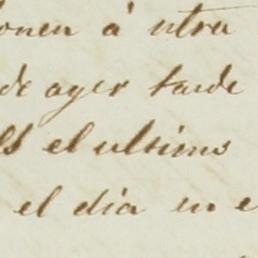 ponen á otra
de ayer tarde
el ultimo
el dia en e